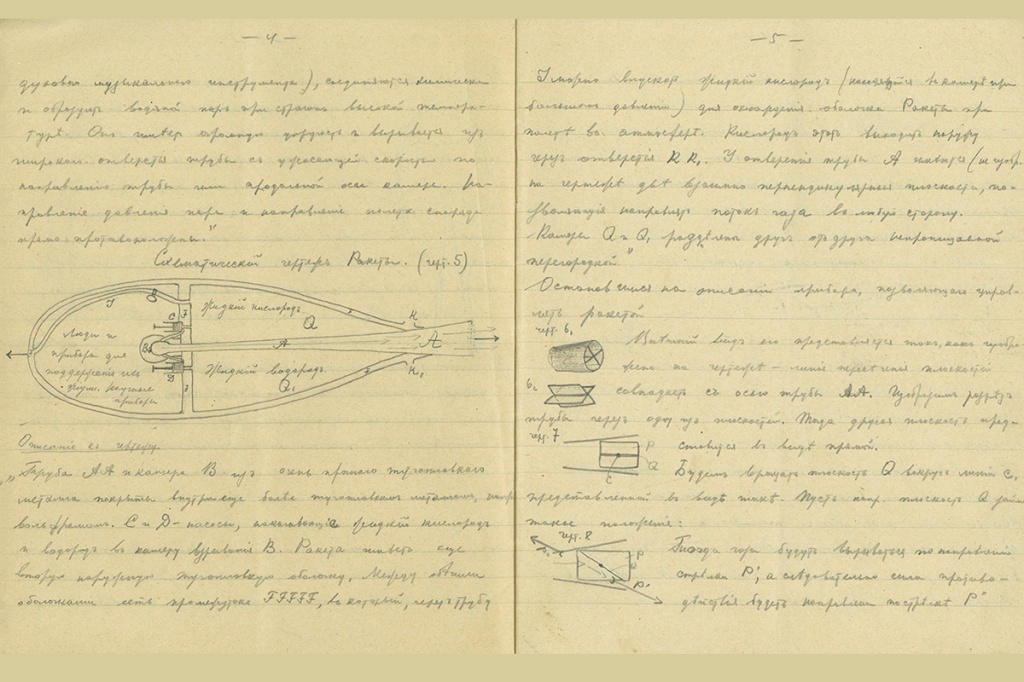 — 4 —
духовом музыкальном инструменте), соединяются химически
и образуют водяной пар при страшно высокой темпера-
туре. Он имеет огромную упругость и вырывается из
широкого отверстия трубы с ужасающей скоростью по
направлению трубы или продольной оси камеры. На-
правление давления пара и направление полета снаряда
прямо противоположны."
Схематический чертеж Ракеты. (черт. 5)
Жидкий кислородъ
Q
Люди и
приборы для
поддержания
Жидкий водородъ
Q₁
A
A
B
C
D
F
K
K₁
Описание къ чертежу.
„Труба АА и камера В изъ очень прочнаго тугоплавкаго
металла покрыты внутри еще более тугоплавким металлом, напр
вольфрамом. С и D – насосы, накачивающіе жидкий кислородъ
и водородъ въ камеру взрыванія В. Ракета имеетъ еще
вторую наружную тугоплавкую оболочку. Между обеими
оболочками есть промежутокъ FFFFF, въ который, черезъ трубу
— 5 —
жидкий кислородъ
большомъ давленіи) для охлажденія оболочки Ракеты при
полетѣ въ атмосферѣ. Кислородъ этотъ выходитъ наружу
черезъ отверстія К К₁. У отверстія трубы А имѣются (не изобр.
на чертежѣ) двѣ взаимно перпендикулярныя плоскости, по-
зволяющія направлять потокъ газа въ любую сторону.
Камеры Q и Q₁ раздѣлены другъ отъ друга непроницаемой
перегородкой."
Остановимся на описаніи прибора, позволяющаго управ-
лять ракетой
черт. 6.
Внѣшній видъ его представляется такъ, какъ изобра-
жено на чертежѣ – линія пересѣченія плоскостей
6₁
совпадаетъ съ осью трубы АА. Изобразимъ разрѣзъ
трубы черезъ одну изъ плоскостей. Тогда другая плоскость пред-
черт. 7
P
Q
C
ставится въ видѣ прямой.
Будемъ вращать плоскость Q вокругъ линіи С,
представленной въ видѣ точки. Пусть напр. плоскость Q займ
такое положеніе:
черт. 8
P
P₁
Тогда газы будутъ вырываться по направленію
стрѣлки P', а слѣдовательно сила противо-
дѣйствія будетъ направлена по стрѣлкѣ P"